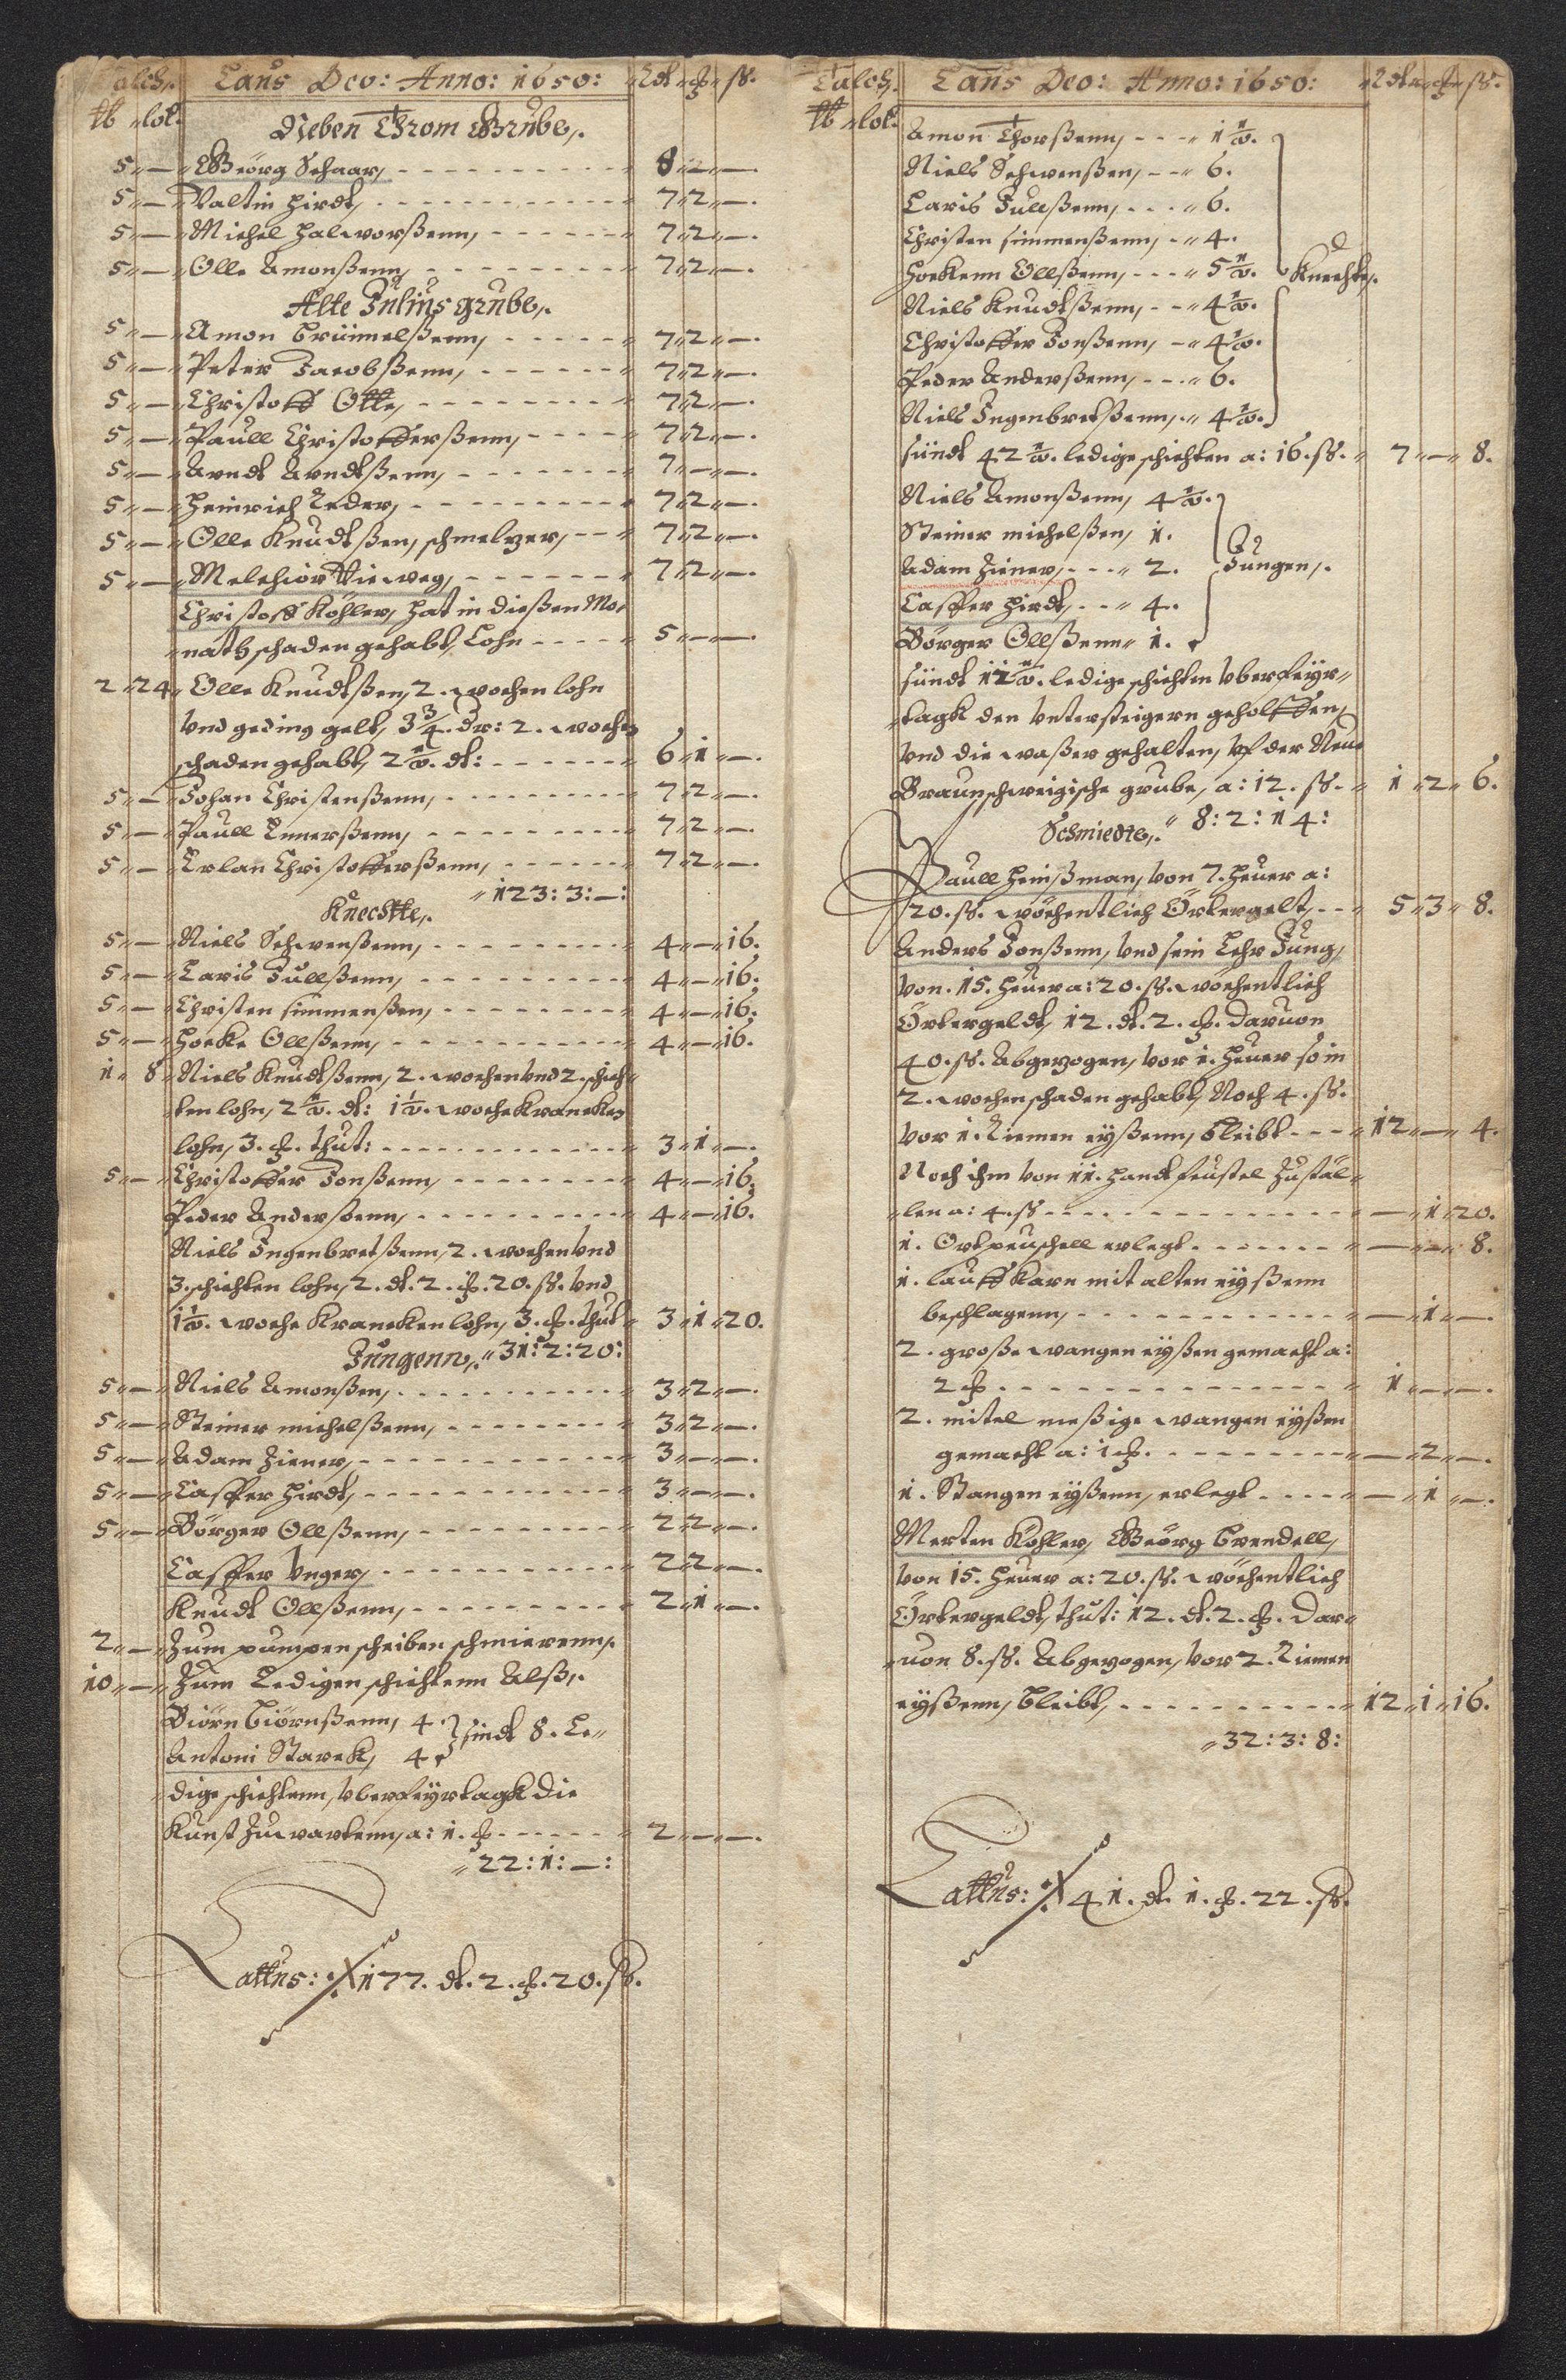 Talch. Laus Deo: Anno: 1650: Rdt ß.
lb lot.
Neben Throm Grube,.
5 — Geörg Schaar, 8 2 —.
5 — Valtin Hirdt, 7 2 —.
5 — Michel Halvorßenn, 7 2 —.
5 — Olle Amonßenn, 7 2 —.
Alte Julius grube,.
5 — Amon Trummelßenn, 7 2 —.
5 — Peter Jacobßenn, 7 2 —.
5 — Christoff Otte, 7 2 —.
5 — Paull Christofferßenn, 7 2 —.
5 — Arndt Arndtßenn, 7 — —.
5 — Heinrich Leder, 7 2 —.
5 — Olle Knudtßen, schmelzer, 7 2 —.
5 — Melchior Vieweg, 7 2 —.
Christoff Köhler, hat in dießen Mo-
nath schaden gehabt, Lohn 5 — —.
2 24 Olle Knudtßen, 2. wochen lohn
Vnd geding gelt, 3 3/4 dr: 2. wochen
schaden gehabt, 2 1/2. dt: 6 1 —.
5 — Johan Christenßenn, 7 2 —.
5 — Paull Ennerßenn, 7 2 —.
5 — Erlan Christofferßenn, 7 2 —.
123: 3: —:
Knechtte,.
5 — Niels Schwenßenn, 4 — 16.
5 — Laris Jullßenn, 4 — 16.
5 — Christen simmenßen, 4 — 16.
5 — Hoeke Ollßenn, 4 — 16.
1 8 Niels Knudtßenn, 2. wochen Vnd 2. schich-
ten lohn, 2 1/2. dt: 1 1/2. woche Krancken
lohn, 3. thut: 3 1 —.
5 — Christoffer Jonßenn, 4 — 16.
Peder Anderßenn, 4 — 16.
Niels Ingenbretßenn, 2. wochen Vnd
3. schichten lohn, 2. dt. 2. 20. ß. Vnd
1 1/2. woche Krancken lohn, 3. thut 3 1 20.
Jungenn,. 31: 2: 20:
5 — Niels Amonßen, 3 2 —.
5 — Steiner michelßenn, 3 2 —.
5 — Adam Ziener, 3 — —.
5 — Casper Hirdt, 3 — —.
5 — Börger Ollßenn, 2 2 —.
Casper Vnger, 2 2 —.
Knudt Ollßenn, 2 1 —.
2 — Zum pumpen scheiben schmierenn,.
10 — Zum Ledigen schichtenn Alß,.
Biörn Biörnßenn, 4
Antoni Starck, 4 sindt 8. Le-
dige schichtenn, vber feyrtagk die
Kunst Zuwartenn, a: 1. 2 — —.
22: 1: —:
Lattus: 177. dt. 2. 20. ß.
Talch. Laus Deo: Anno: 1650: Rdt ß.
lb lot.
Amon Thorßenn, 1 1/2.
Niels Schwenßen, 6.
Laris Jullßenn, 6.
Christen simmenßenn, 4.
Hoekenn Ollßenn, 5 1/2. Knechte,.
Niels Knudtßenn, 4 1/2.
Christoffer Jonßenn, 4 1/2.
Peder Anderßenn, 6.
Niels Ingenbretßenn, 4 1/2.
sündt 42 1/2. ledige schichten a: 16. ß. 7 — 8.
Niels Amonßenn, 4 1/2.
Steiner michelßen, 1.
Adam Ziener, 2. Jungen,.
Casper Hirdt, 4.
Börger Ollßenn 1.
sündt 12 1/2. ledige schichten vber feyr-
tagk den vntersteigern geholffen,
Vnd die waßer gehalten, vf der Neue
Braunschweigische grube, a: 12. ß. 1 2 6.
Schmiedte,. 8: 2: 14:
Paull Heinßman, von 7. Heuer a:
20. ß. wöchentlich Örtergelt, 5 3 8.
Anders Jonßenn, Vnd sein Lehr Jung,
Von 15. Heuer a: 20. ß. wöchentlich
Örtergeldt, 12. dt. 2. daruon
40. ß. Abgezogen, vor 1. Heuer so in
2. wochen schaden gehabt, Noch 4. ß.
Vor 1. Riemen eyßenn, bleibt 12 — 4.
Noch ihm von 11. Handtfeustel Zustäl-
len a: 4. ß — 1 20.
1. Ortpeuschell erlegt — — 8.
1. lauff Karn mit alten eyßenn
beschlagenn, — 1 —.
2. große wangen eyßen gemacht a:
2 1 — —.
2. mitel meßige wangen eyßen
gemacht a: 1 — 2 —.
1. Stangen eyßenn, erlegt — 1 —.
Merten Köhler, Geörg Trendell,
Von 15. Heuer a: 20. ß. wöchentlich
Örtergeldt, thut: 12. dt. 2. Dar-
uon 8. ß. Abgezogen, vor 2. Riemen
eyßenn, bleibt, 12 1 16.
32: 3: 8:
Lattus: 41. dt. 1. 22. ß.